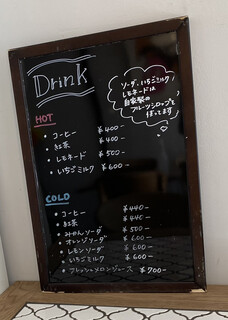 Drink
ソーダ、いちごミルク
レモネードは
自家製の
フルーツシロップを
つかってます
HOT
・コーヒー ¥400-
・紅茶 ¥400-
・レモネード ¥500-
・いちごミルク ¥600-
COLD
・コーヒー ¥440-
・紅茶 ¥440-
・みかんソーダ ¥500-
・オレンジソーダ ¥600-
・レモンソーダ ¥600-
・いちごミルク ¥600-
・フレッシュメロンジュース ¥700-